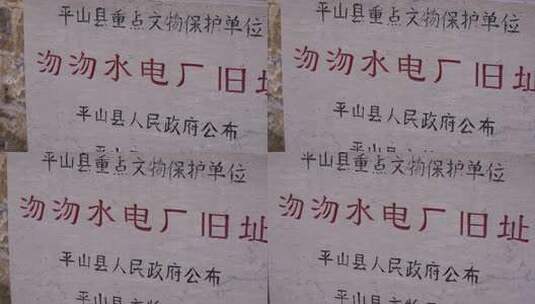 平山县重点文物保护单位
沕沕水电厂旧址
平山县人民政府公布
平山县重点文物保护单位
沕沕水电厂旧址
平山县人民政府公布
平山县重点文物保护单位
沕沕水电厂旧址
平山县人民政府公布
平山县文物
平山县重点文物保护单位
沕沕水电厂旧址
平山县人民政府公布
平山县文物